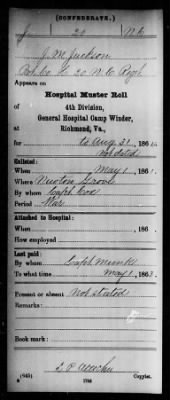 (CONFEDERATE.)
J 20 N.C.
J. M. Jackson
Co. H 20 N.C. Regt
Appears on
Hospital Muster Roll
of
4th Division,
General Hospital Camp Winder,
at
Richmond, Va.,
for to Aug 31, 186
not dated
Enlisted:
When May 1, 186
Where Newton Grove
By whom Capt Cox
Period War
Attached to Hospital:
When , 186 .
How employed
Last paid:
By whom Capt
To what time May 1, 186
Present or absent Not stated
Remarks:
Book mark:
(645)
Copyist.